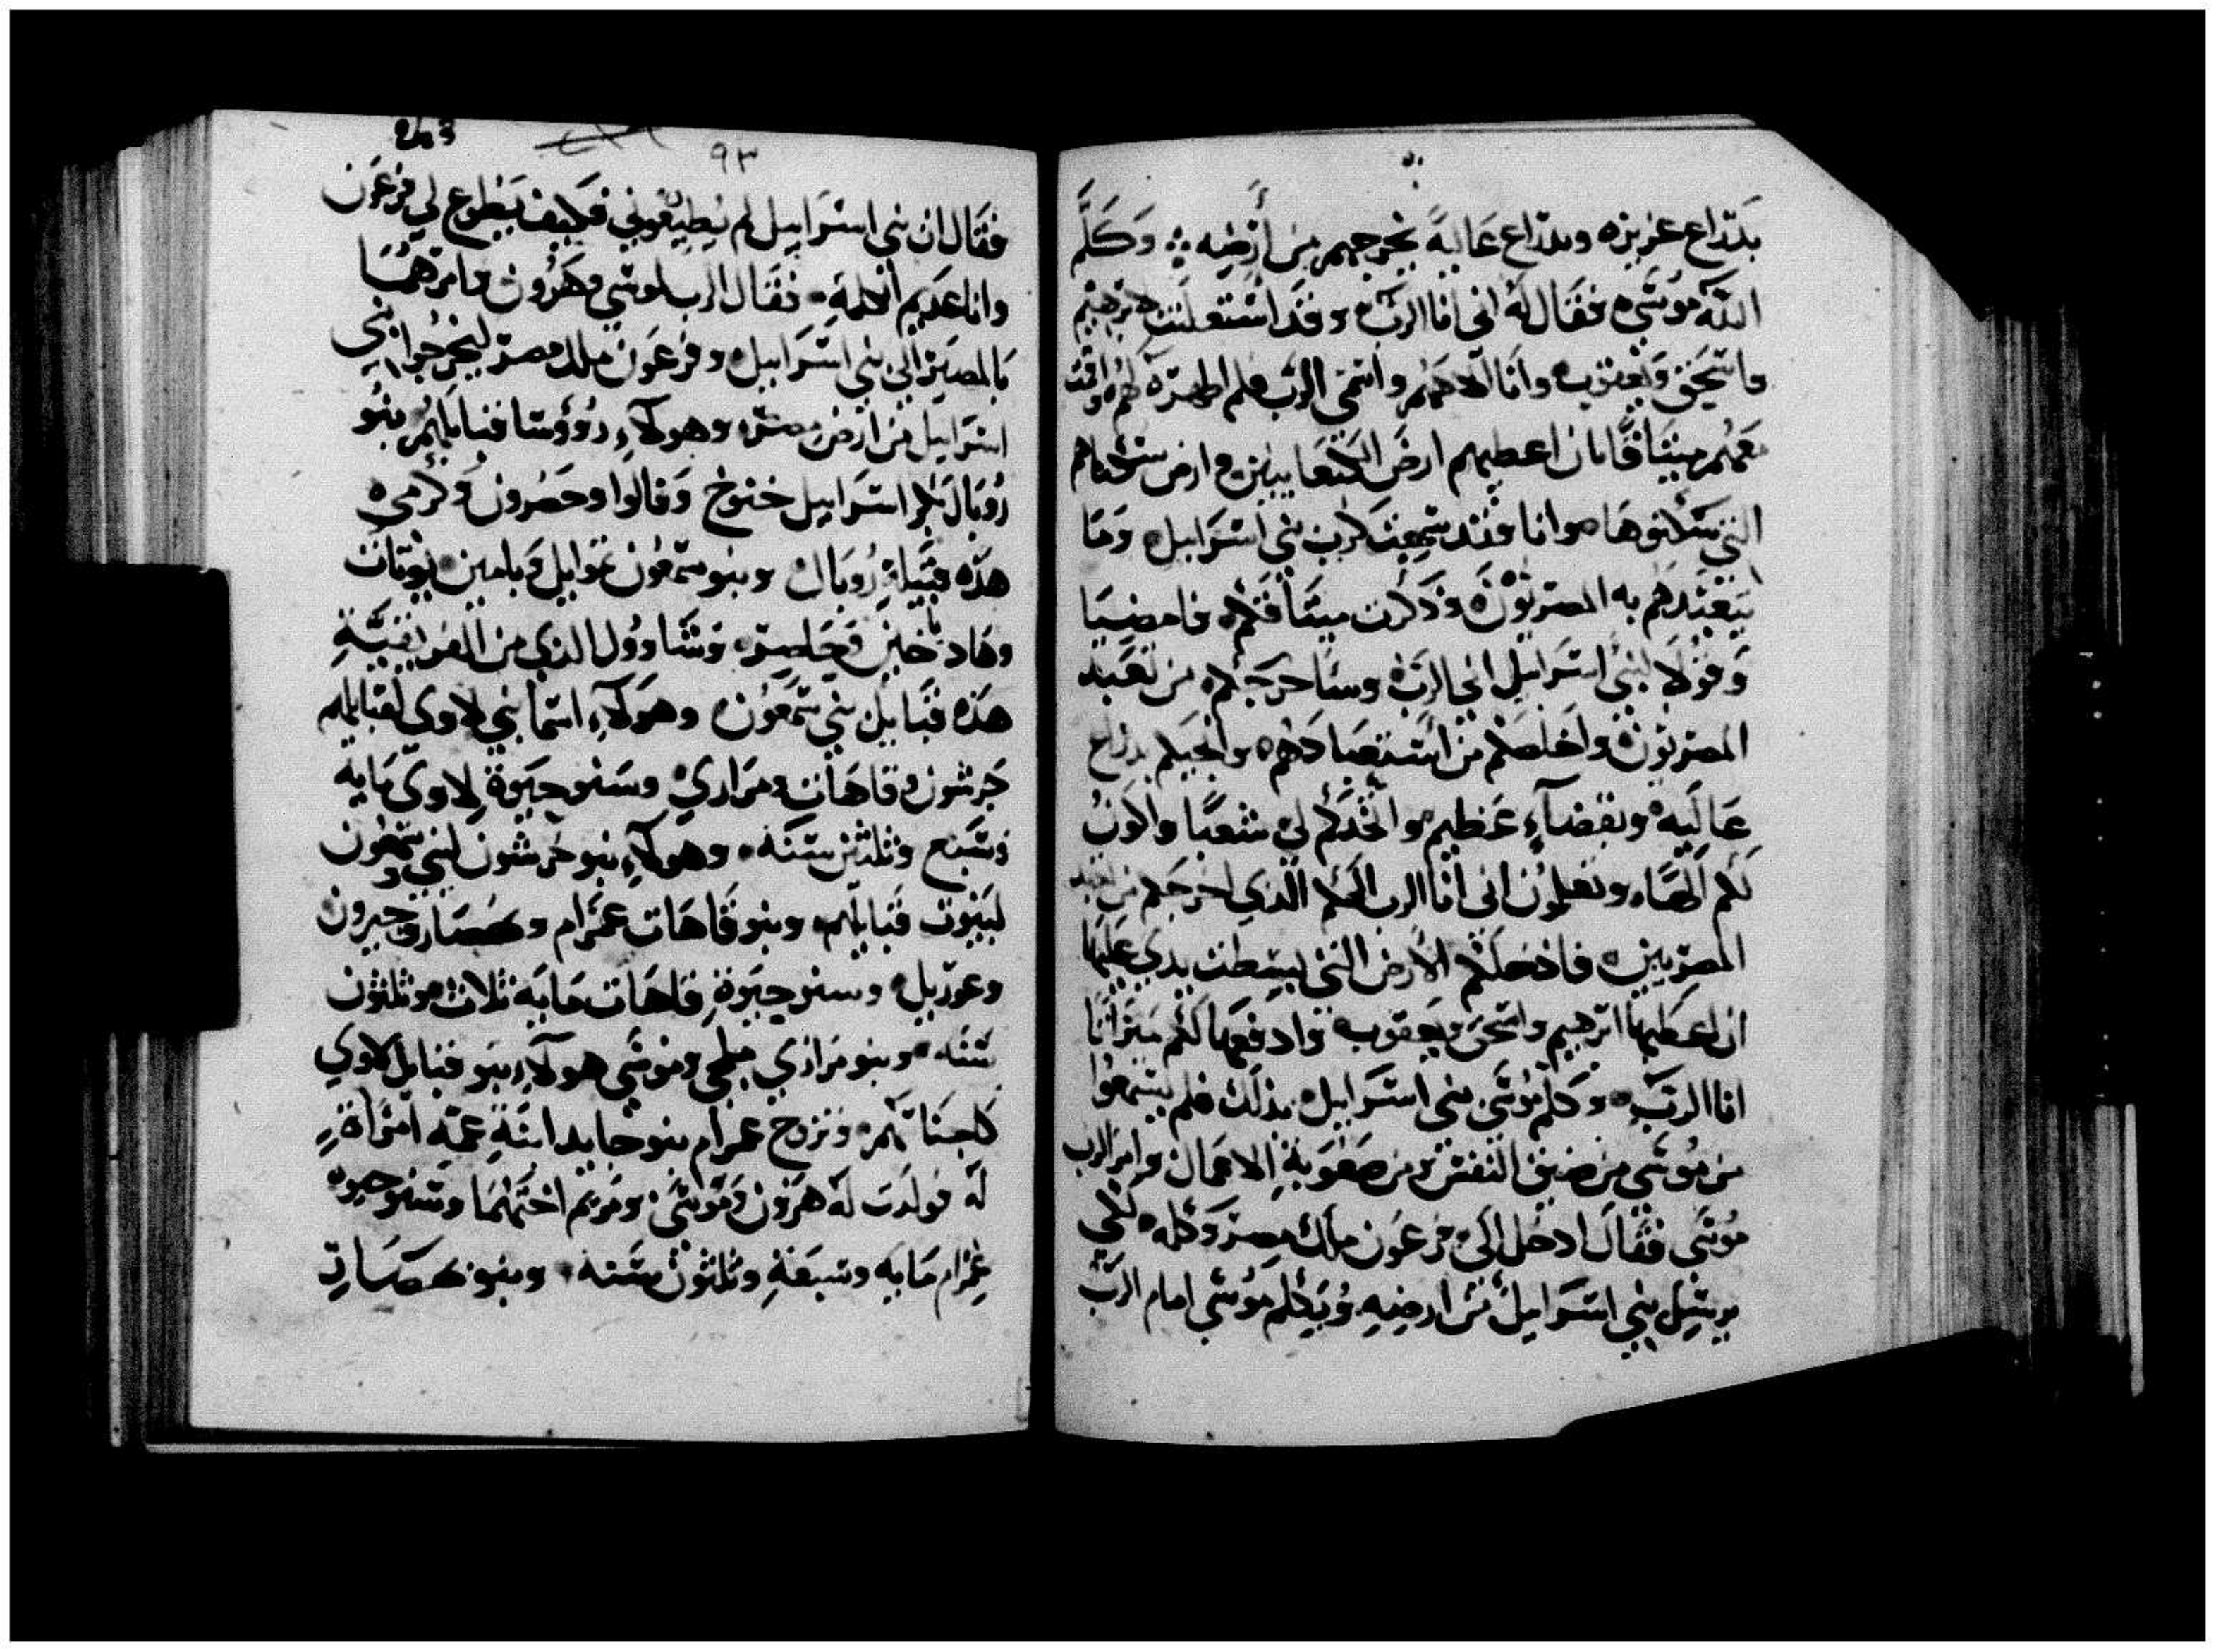 بذراع عزيزه وبذراع عاليةً يخرجهم من أرضِيه وَكَلَّم
اللَّه مُوسَى فقال لهُ انى انا الربّ وقد استعلنت لابرهيم
واسحَق وَيعقوب وانا الاههم واسمى الربّ فلم اظهره لهُم واقمت
معَهُم ميثاقًا بان اعطيهم ارضَ الكنعانيين وارض سكناهم
التى سَكنوهَا وانا فقد سَمِعت كرب بنى اسرَاييل ومَا
يَتعَبّدهُم به المصريُّون وذكرت ميثاقَكم فامضِيَا
وَقولا لبنى اسرَاييل انى الربّ وسَاخرجَكم من تعَبّد
المصريون واخلصكم من استعبادهم وانجيكم بذراع
عاليَه وبقضاءٍ عَظيم واتخذكم لى شعبًا واكونُ
لكم الهًا وتعلمون انى انا الرب الهكم الذي اخرجكم من تعبد
المصريين فادخلكم الارض التى بسِطت يدي عليهَا
ان اعطيها ابرهيم واسحَق ويعقوب وادفعهَا لكم ميراثًا
انا الربّ وكلم مُوسَى بنى اسرَاييل بذلك فلم يسمعُوا
من مُوسَى من ضيق النفس ومن صَعُوبةِ الاعمال وامر الرب
مُوسَى فقَال ادخل الى فرعَون ملك مصر وكلمه لكى
يرسِل بنى اسرَاييل من ارضِيهِ وَتكلم مُوسَى امام الربّ
٩٣
فقَال ان بنى اسرَاييل لم يطِيعُونى فكيف يَطوع لى فرعَون
وانا عَديم الكلمةِ فقال الرب لموسَى وهَرُون وامرهُمَا
بالمصير الى بنى اسرَاييل وفرعَون ملك مصر ليخرجُوا بَنى
اسرَاييل من ارض مصر وهولاءِ رُوؤسا قبايلهُم بنُو
رُوبَال بكر اسرَاييل خنوخ وَفالوا وحصرُون وَكرمى
هذه قبَيلةِ رُوبَال وبنو سمعُون يموايل وَيامين
وهاد وَشاوُول الذي من
هَذه قبَايل بنى سَمعُون وهَولاءِ اسمَا بنى لاوى لقبايلهم
جَرشون وقاهَات ومرَاري وسَنو حيَوةِ لاوىَ مَايه
وَسَبع وثلثين سَنه وهولاءِ بنو جرشون لبنى وسمعُون
لبيُوت قبايلهم وبنو قَاهَات عمَرام وَحبرون
وعوزيل وسنو حيَوةِ قاهَات مَايَه ثلاث وثلثون
سَنَه وبنو مرَاري مجلى ومُوسَى هولاءِ بَنو قبَايل لاوي
كاجنَاسَهم وتزوج عمرام ابنةِ عمّه امرَاةٍ
لَه فولَدت لَه هَرُون وَمُوسَى ومَريم اختَهُمَا وسَنو حيوه
عمَرام مَايَه وسَبعَةِ وثلثون سَنه وبنو